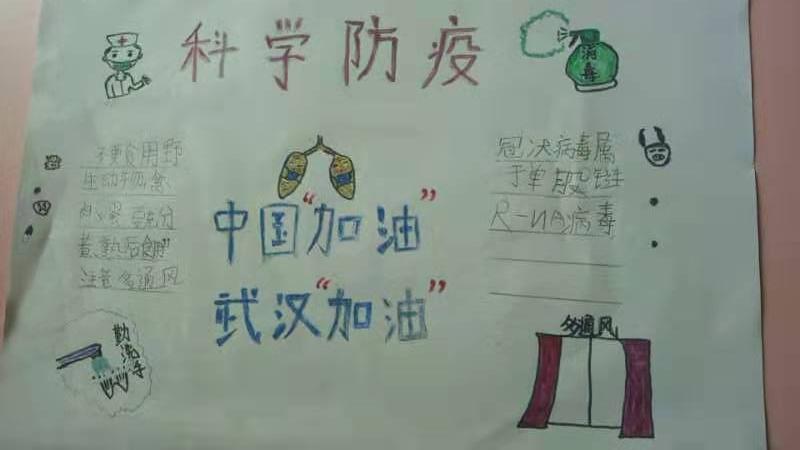 科学防疫
消毒
不要食用野
生动物禽
肉、蛋要充分
煮熟后食用
注意多通风
中国“加油”
武汉“加油”
冠状病毒属
于单股链
R-NA病毒
勤洗手
多通风